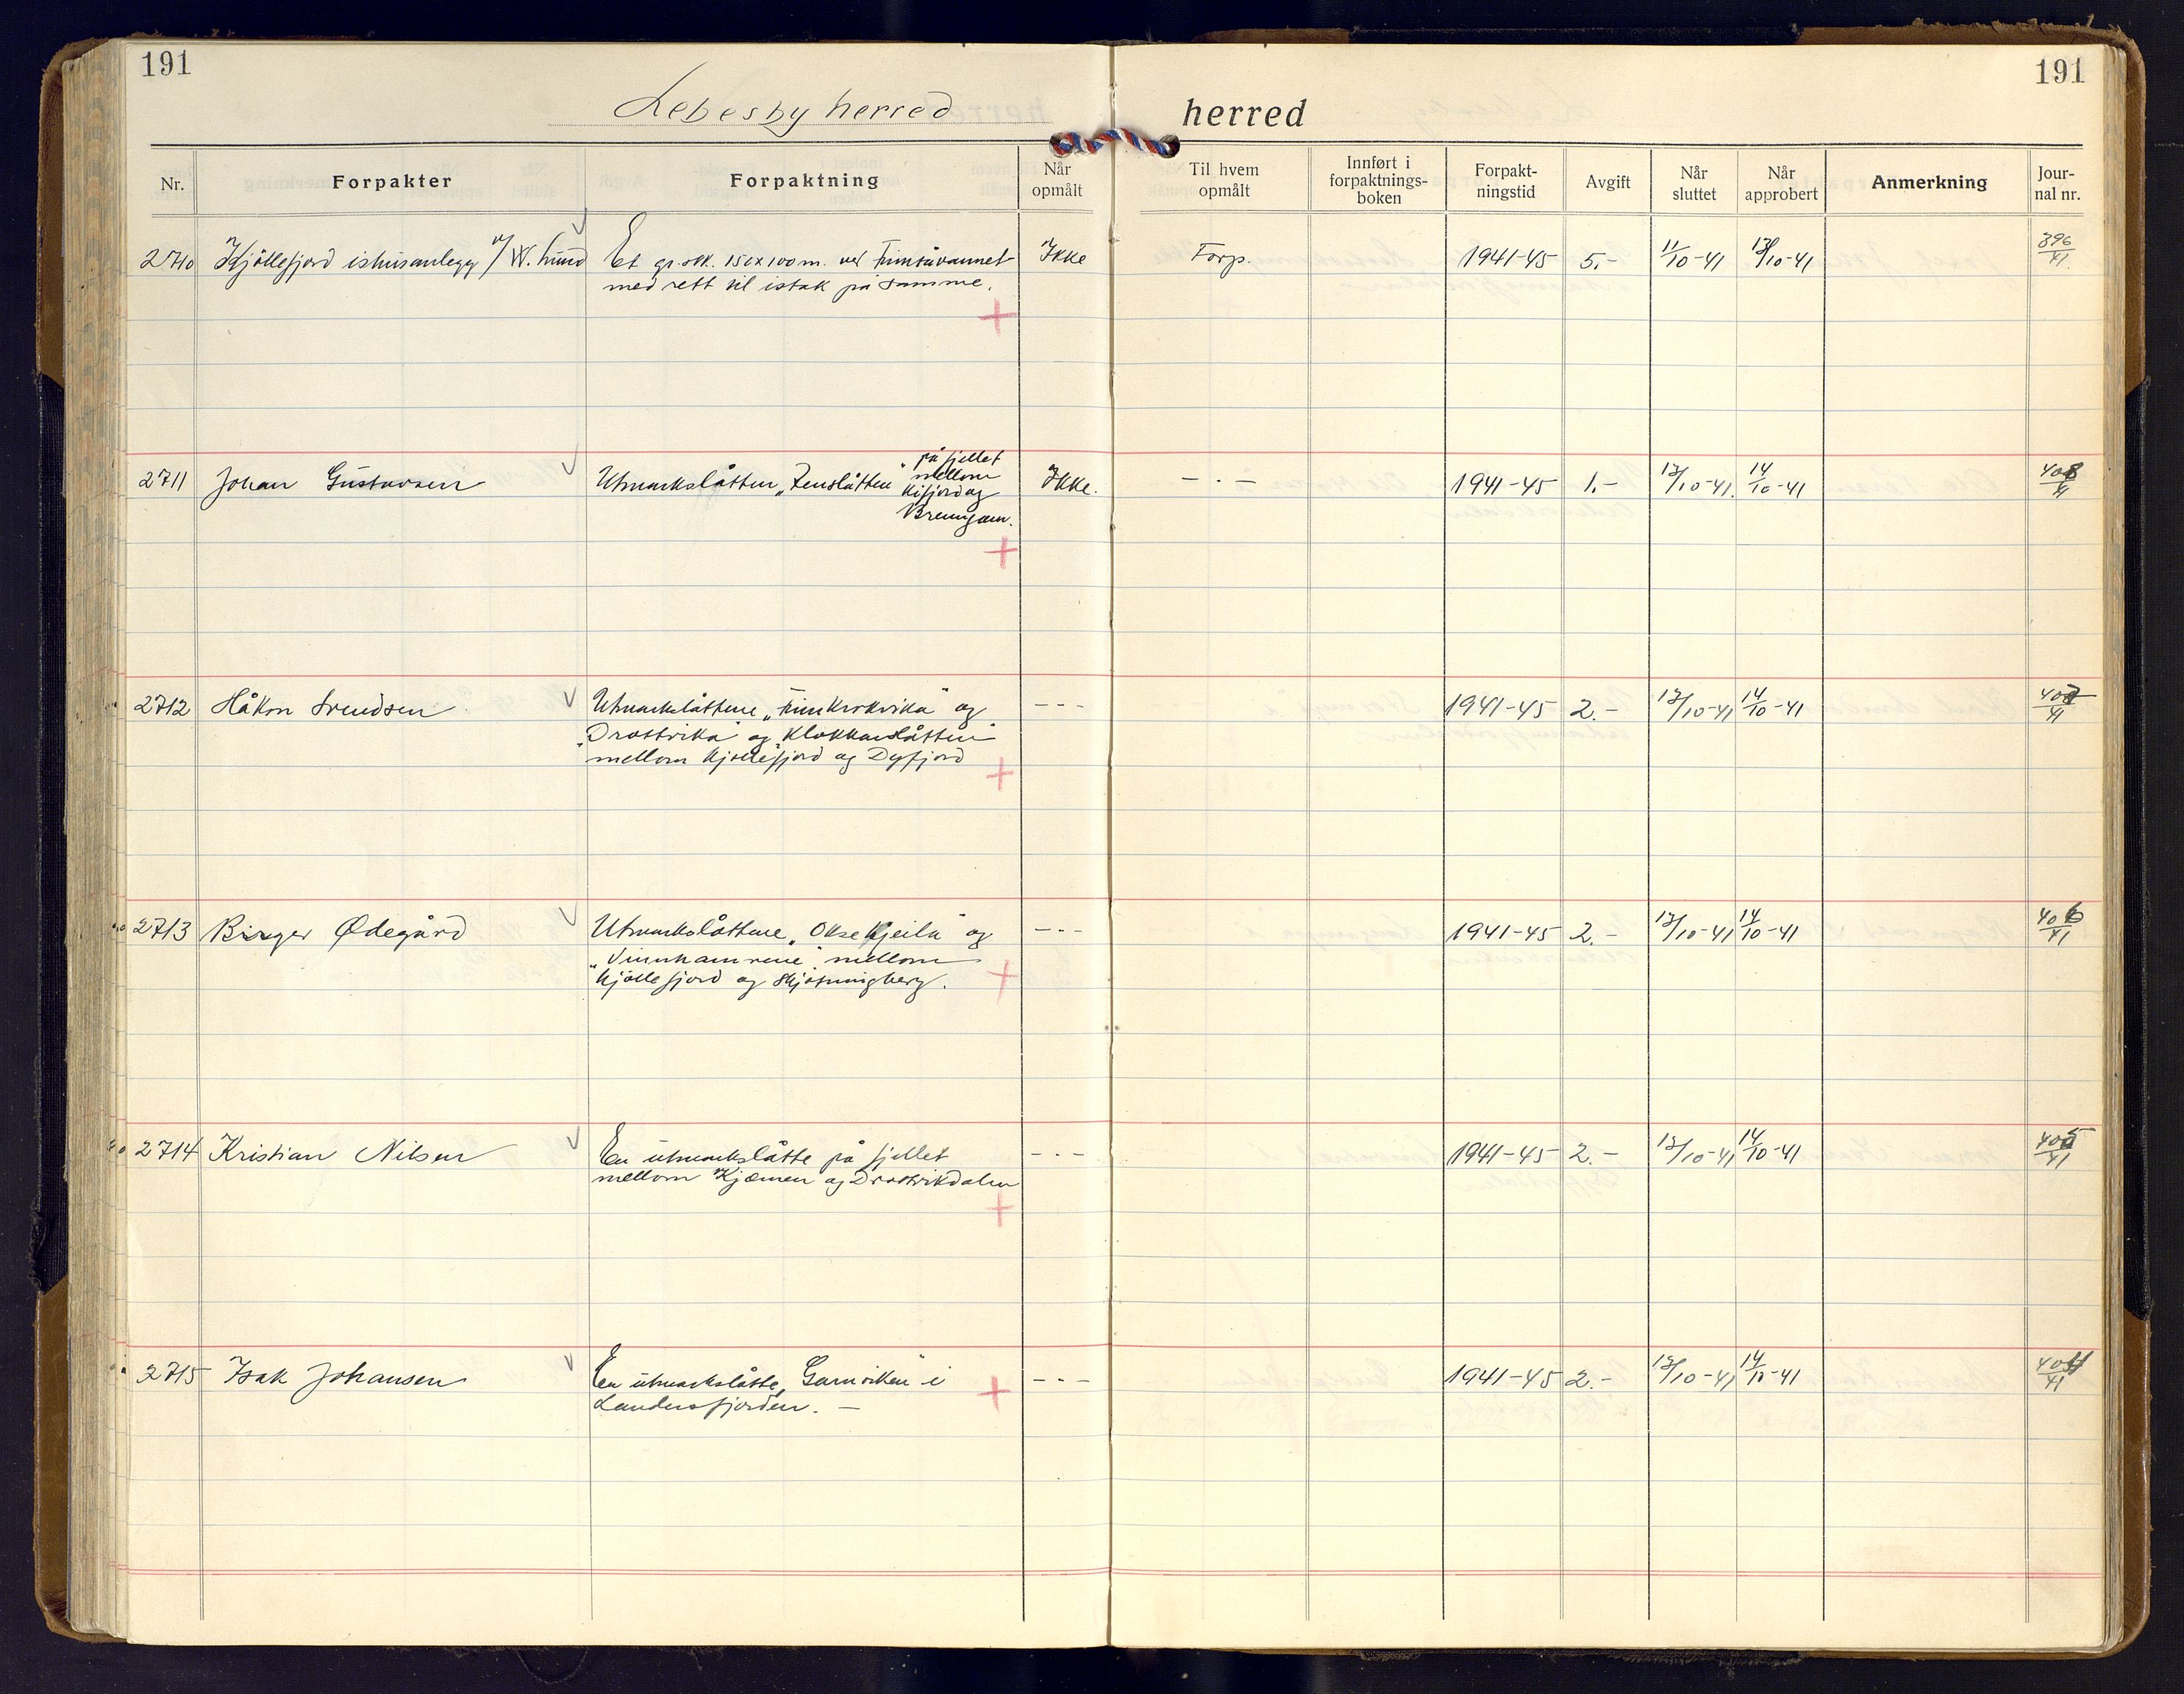 191
191
Lebesby herred
herred
Nr.
Forpakter
Forpaktning
Når opmålt
Til hvem opmålt
Innført i forpaktnings-boken
Forpakt-ningstid
Avgift
Når sluttet
Når approbert
Anmerkning
Jour-nal nr.
2710 Kjøllefjord ishusanlegg v/ W. Lund Et gr.stk. 150x100 m. ved Finnsåvannet Ikke Forp. 1941-45 5.- 11/10-41 13/10-41 396/41.
med rett til istak på samme.
på fjellet
2711 Johan Gustavsen Utmarkslåtten „Tenslåtten“ mellom Ikke. -.- 1941-45 1.- 13/10-41. 14/10-41 408/41
Kifjord og
Brenngam.
2712 Håkon Svendsen Utmarkslåttene „Finnkrokvika“ og - - - 1941-45 2.- 13/10-41 14/10-41 407/41
„Drottvika“ og Klokkarslåtten
mellom Kjøllefjord og Dyfjord
2713 Birger Ødegård Utmarkslåttene „Oksekjeila“ og - - - 1941-45 2.- 13/10-41 14/10-41 406/41
„Vinnhamrene“ mellom
Kjøllefjord og Skjøtningberg.
2714 Kristian Nilsen En utmarkslåtte på fjellet - - - 1941-45 2.- 13/10-41 14/10-41 405/41
mellom Kjæmen og Drottvikdalen
2715 Isak Johansen En utmarkslåtte „Garnviken“ i - - - 1941-45 2.- 13/10-41 14/10-41 404/41
Landersfjorden. -